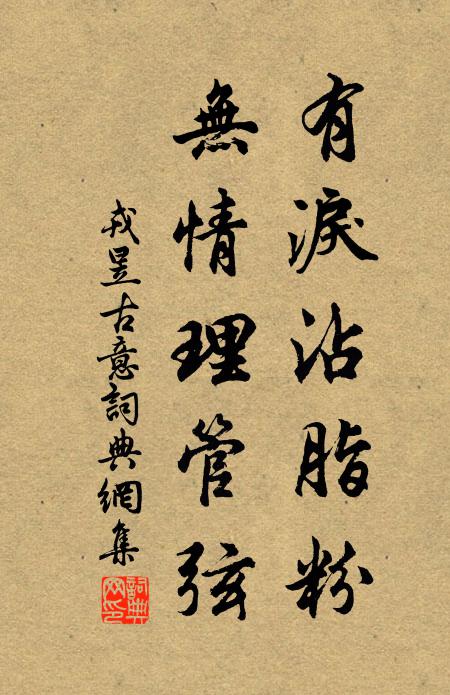 有淚沾脂粉
無情理管弦
戎昱古意詞典網集
詞典网印